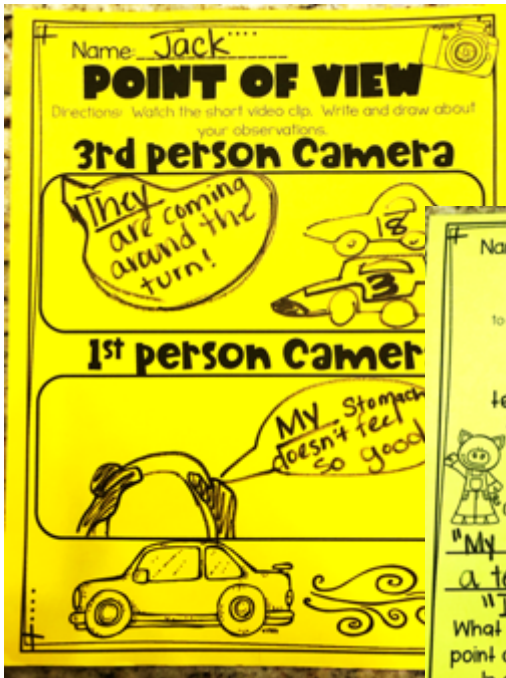 Name: Jack
POINT OF VIEW
Directions: Watch the short video clip. Write and draw about
your observations.
3rd person Camera
"They
are coming
around the
turn!
18
3
1st person Camer
My Stomach
doesn't feel
so good
Na
to
te
"My
a te
"I
What
point o